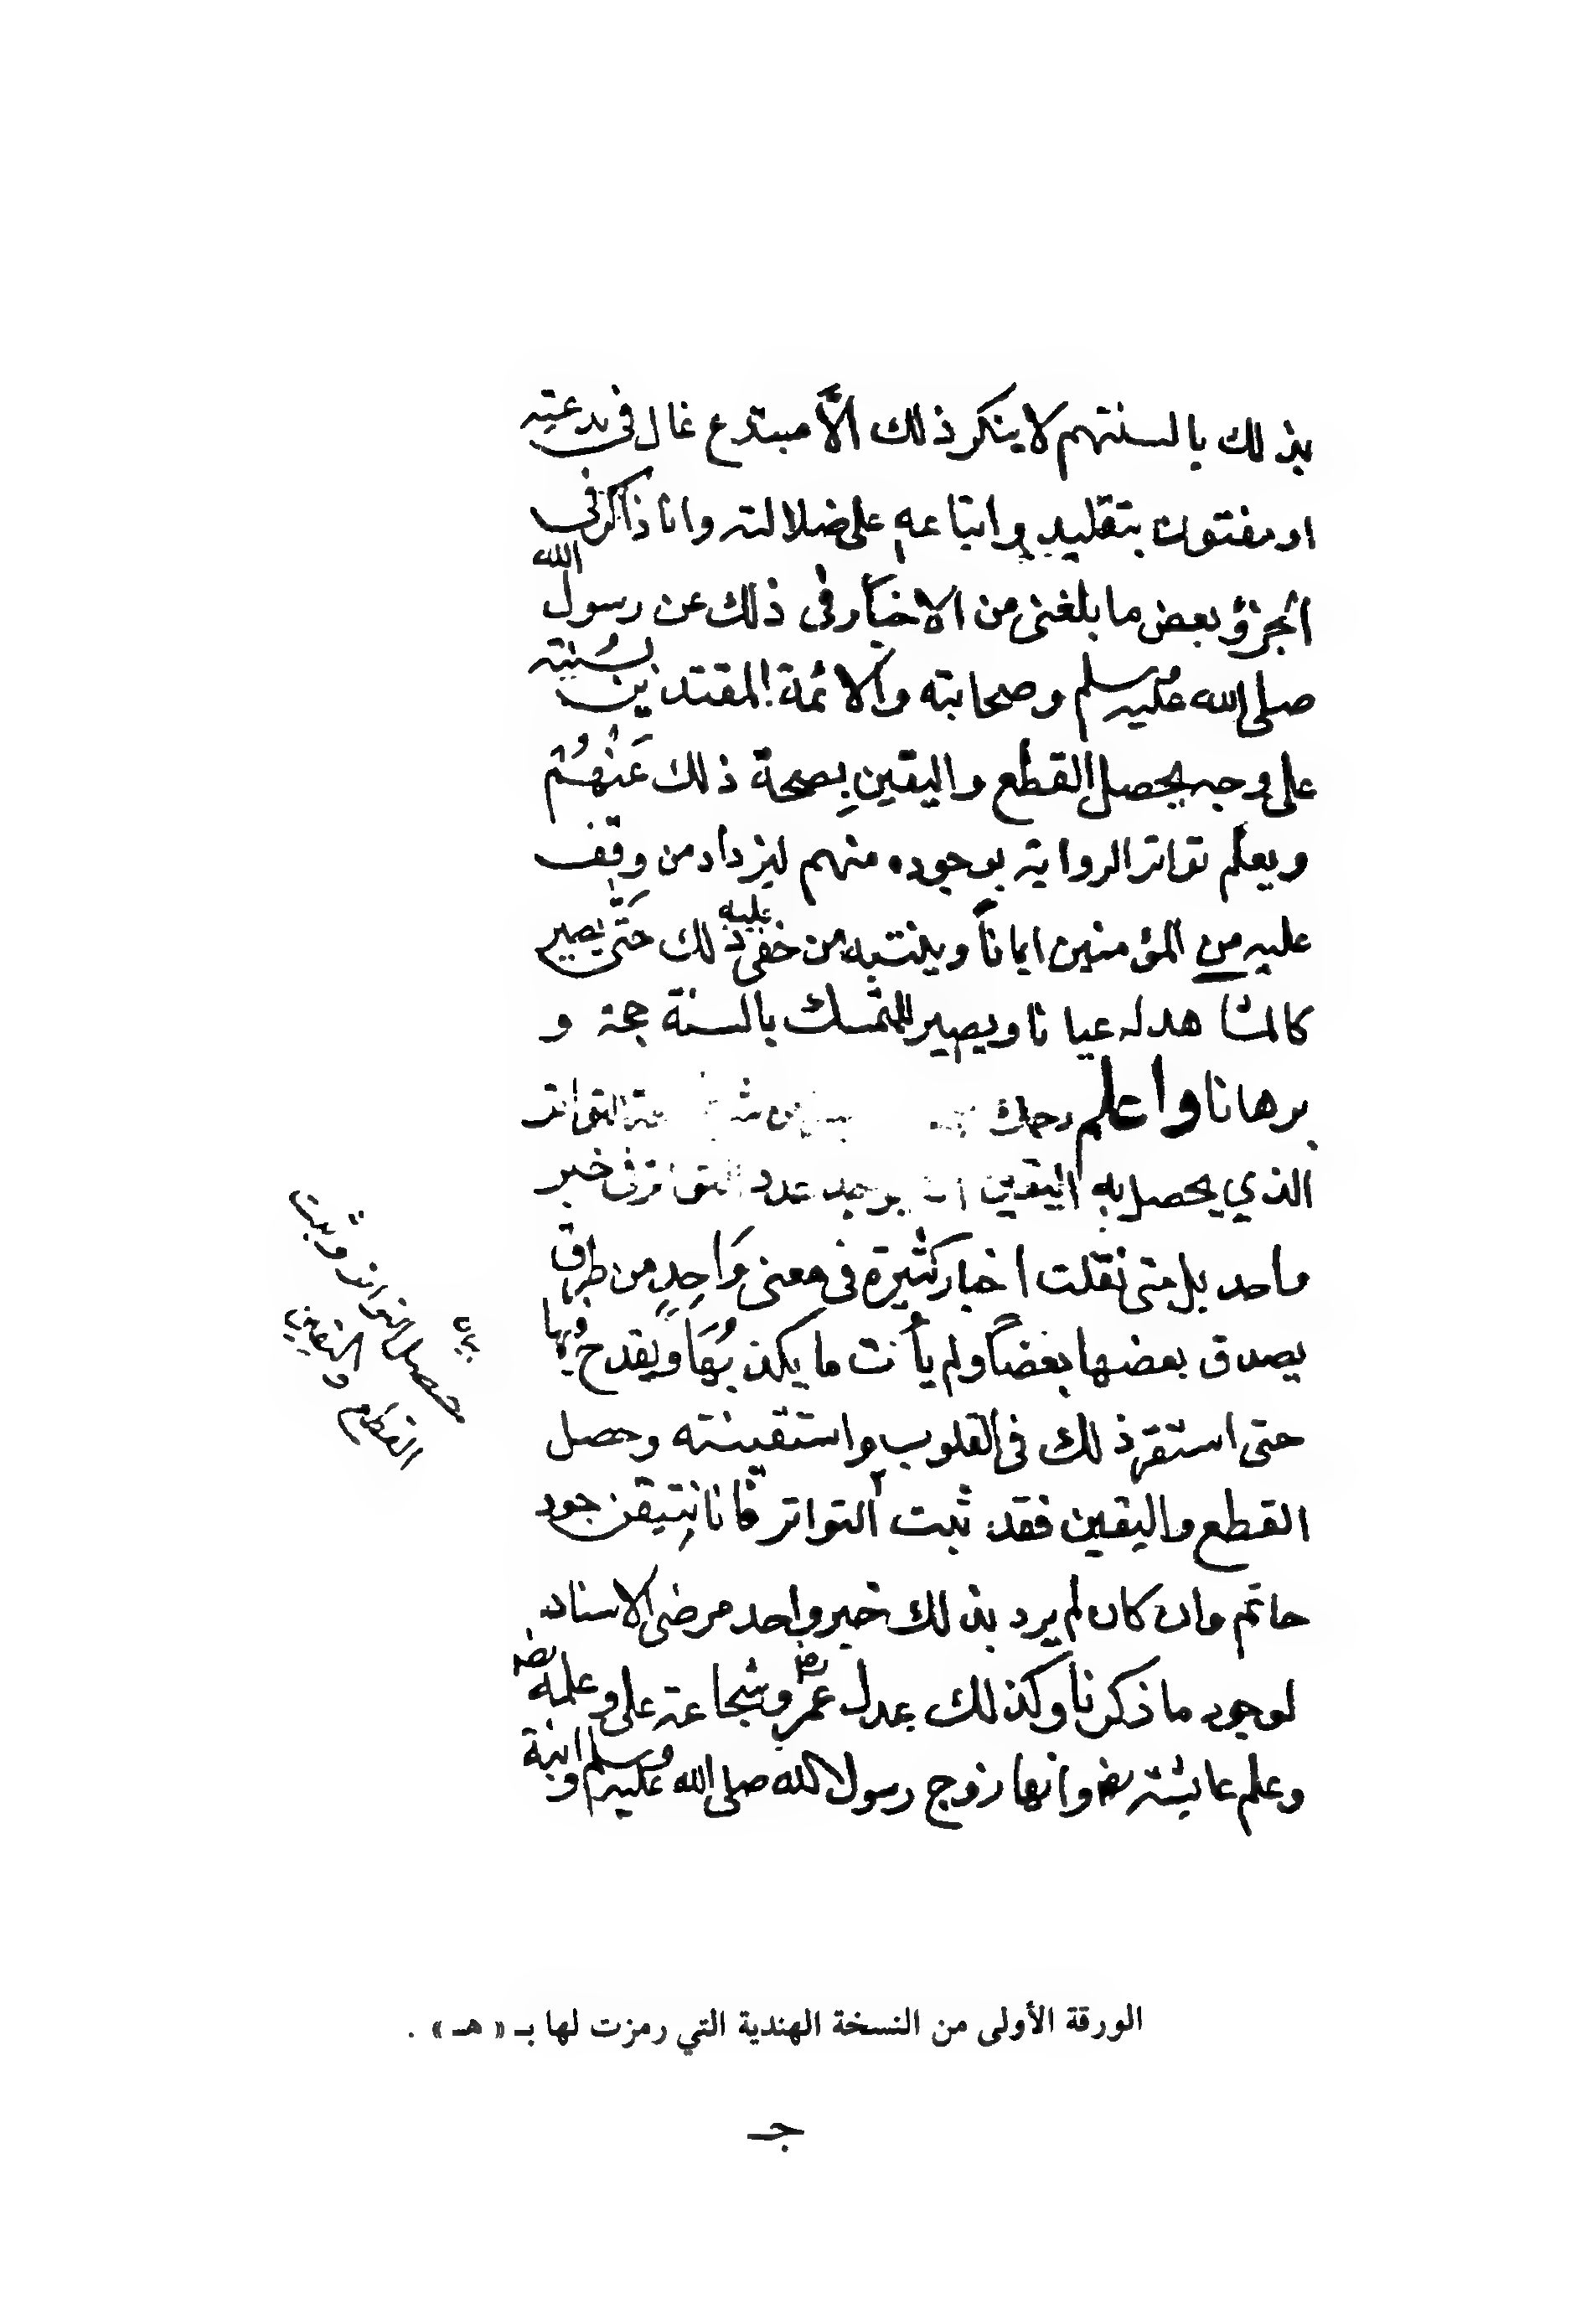 بذلك بالسنتهم لا ينكر ذلك الّا مبتدع غال فى بدعته
او مفتون بتقليده واتباعه على ضلالته وانا ذاكر فى
الجزؤ بعض ما بلغنى من الاخبار فى ذلك عن رسول الله
صلى الله عليه وسلم وصحابته والائمة المقتدين بسُنته
على وجه يحصل القطع واليقين بِصحة ذلك عَنْهُمْ
ويعلم تواتر الرواية بوجوده منهم ليزداد من وقف
عليه من المؤمنين ايماناً وينتبه من خفى عليه ذلك حَتّى يصير
كالمشاهد له عيانا ويصير للمتمسك بالسنة حجة و
برهانا واعلم رحمك التواتر
الذي يحصل به اليقين يوجد عدد التواتر فى خبر
واحد بل متى نقلت اخبار كثيرة فى معنى وَاحِدٍ من طرق
يصدق بعضها بعضاً ولم يأت ما يكذبُهَا ويقدح فيها
حتى استقر ذلك فى القلوب واستقينته وحصل
القطع واليقين فقد ثبت التواتر فانا نتيقن جود
حاتم وان كان لم يرد بذلك خبر واحد مرضى الاسناد
لوجود ما ذكرنا وكذلك عدل عمر رض وشجاعة على وعلمه رضه
وعلم عايشة رض وانها زوج رسول الله صلى الله عليه وسلم وابنة
بيان
حصل التواتر وثبت
القطع واليقين
الورقة الأولى من النسخة الهندية التي رمزت لها بـ « هـ » .
جـ